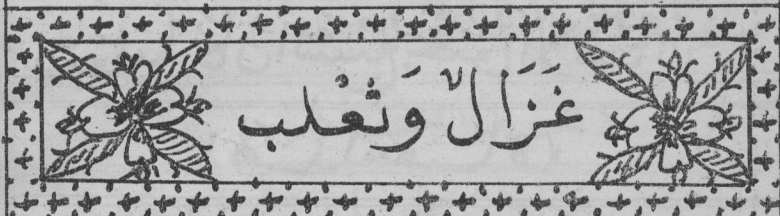 غَزَالٌ وَثَعْلَب